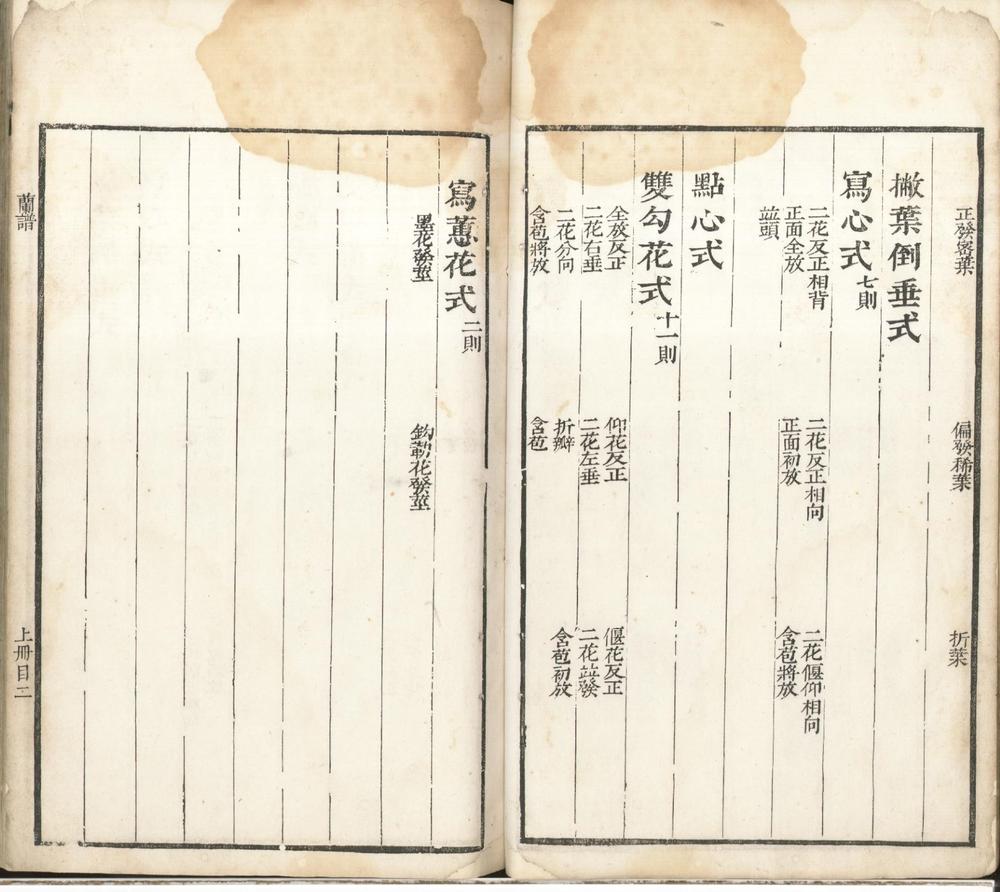 正發密葉　偏發稀葉　折葉
撇葉倒垂式
寫心式 七則
二花反正相背　二花反正相向　二花偃仰相向
正面全放　正面初放　含苞將放
並頭
點心式
雙勾花式 十一則
全放反正　仰花反正　偃花反正
二花右垂　二花左垂　二花並發
二花分向　折瓣　含苞初放
含苞將放　含苞
寫蕙花式 二則
墨花發莖　鈎勒花發莖
蘭譜　上冊目二